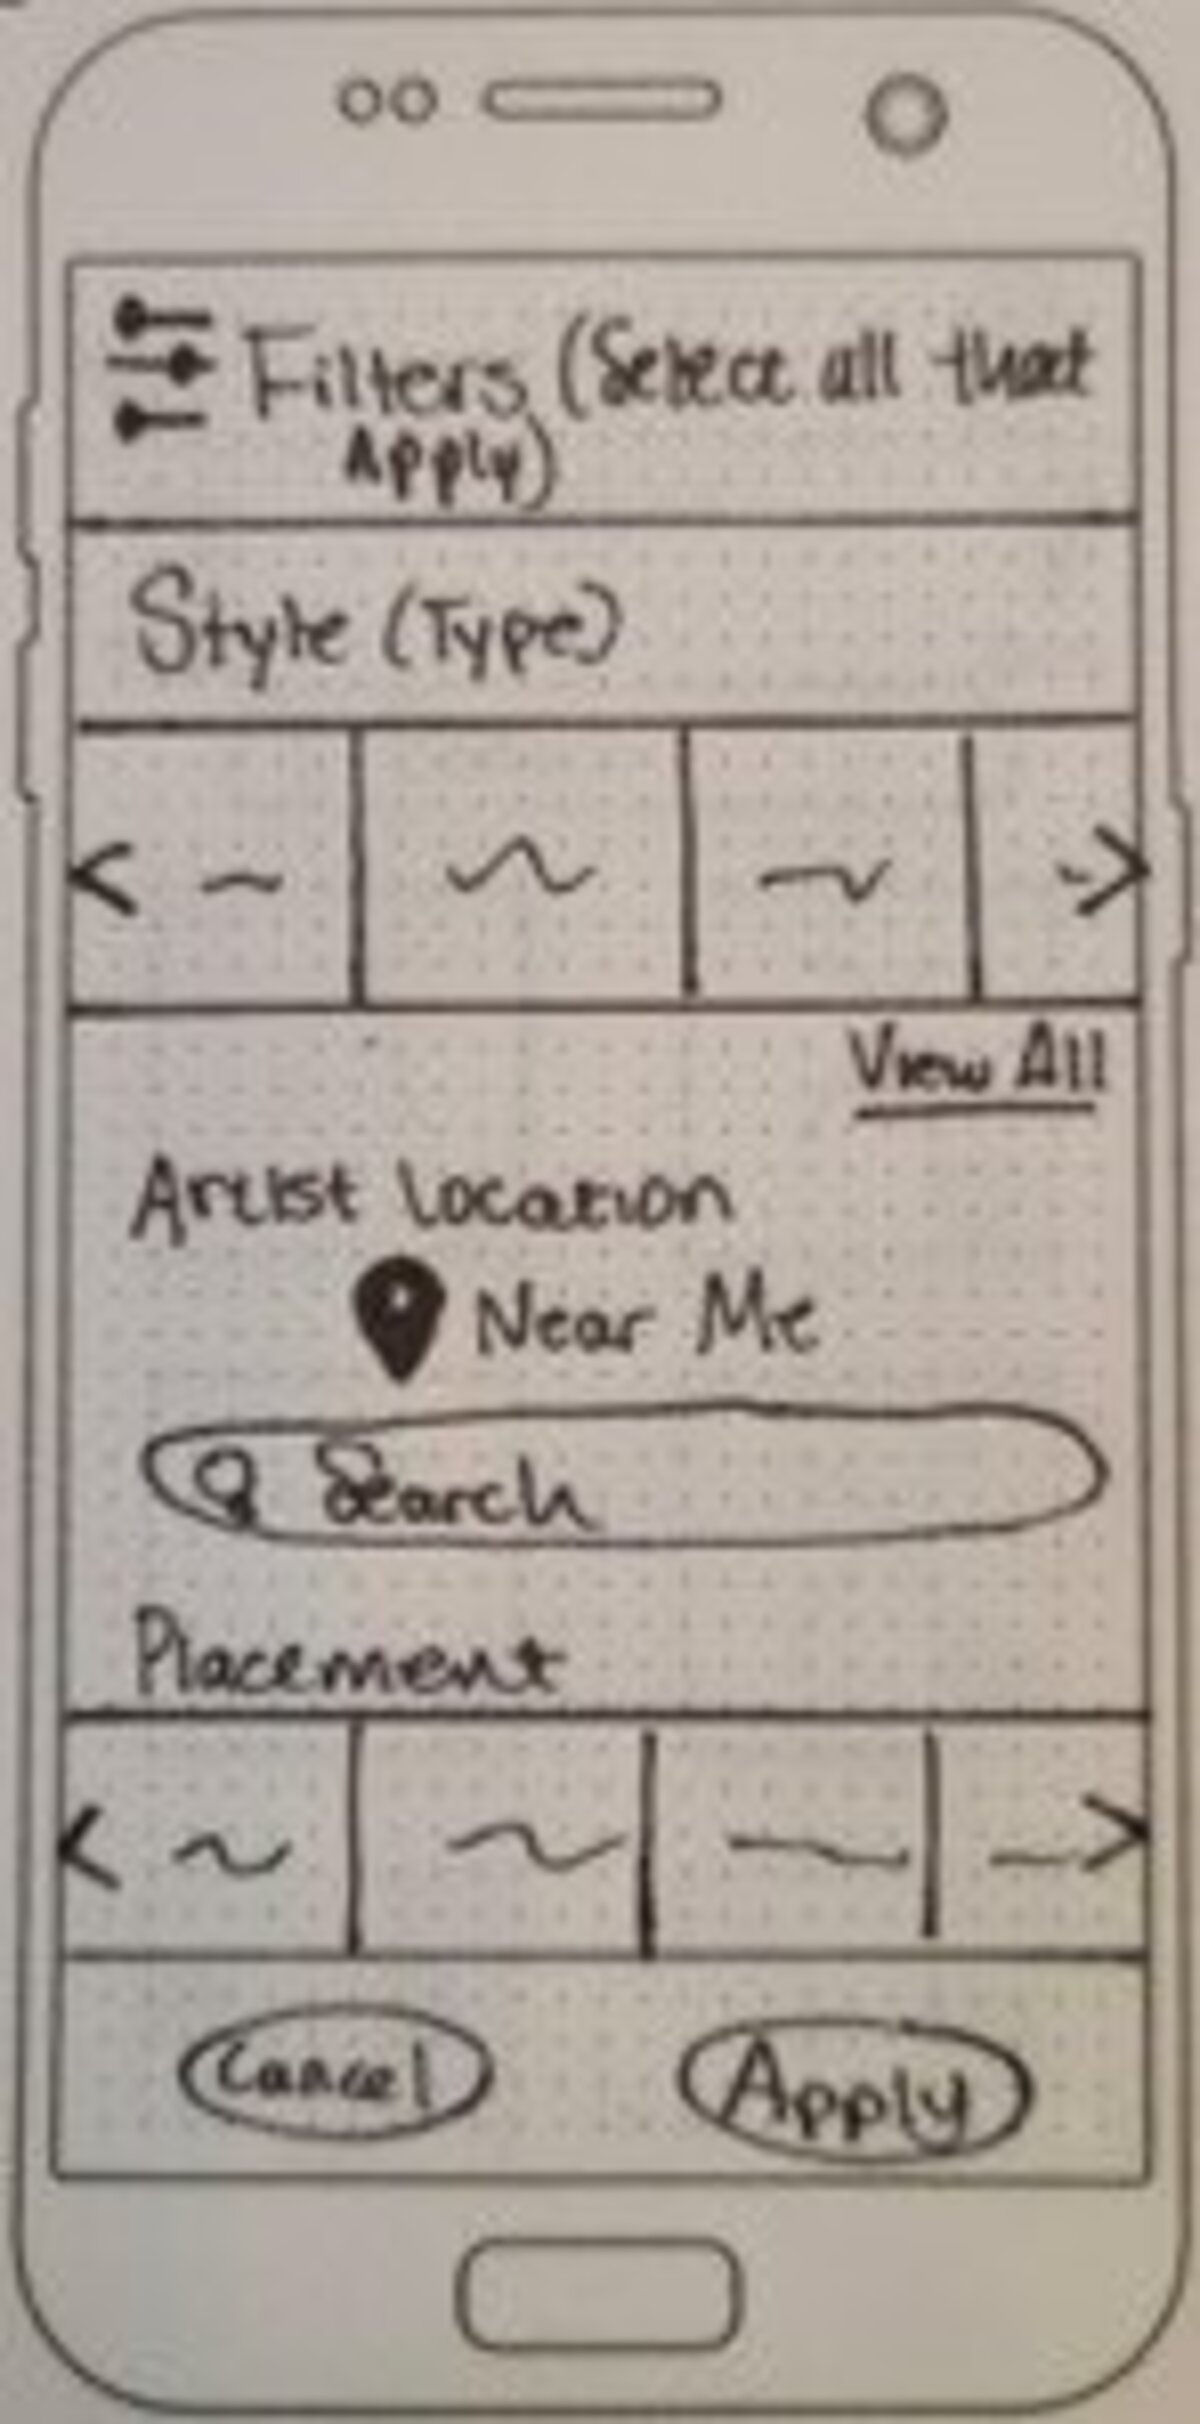 Filters (Select all that
Apply)
Style (Type)
View All
Artist Location
Near Me
Search
Placement
Cancel
Apply